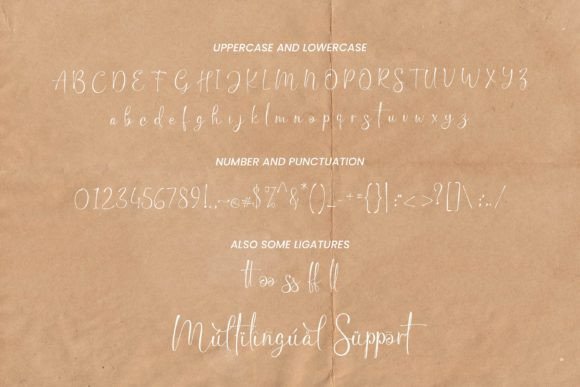 UPPERCASE AND LOWERCASE
ABCDEFGHIJKLMNOPQRSTUVWXYZ
abcdefghijklmnopqrstuvwxyz
NUMBER AND PUNCTUATION
0123456789!,.~@#$%^&*()_-+={}|:"<>?[]\;:../
ALSO SOME LIGATURES
tt ee ss ff ll
Mùltïlïngúàl Süppört